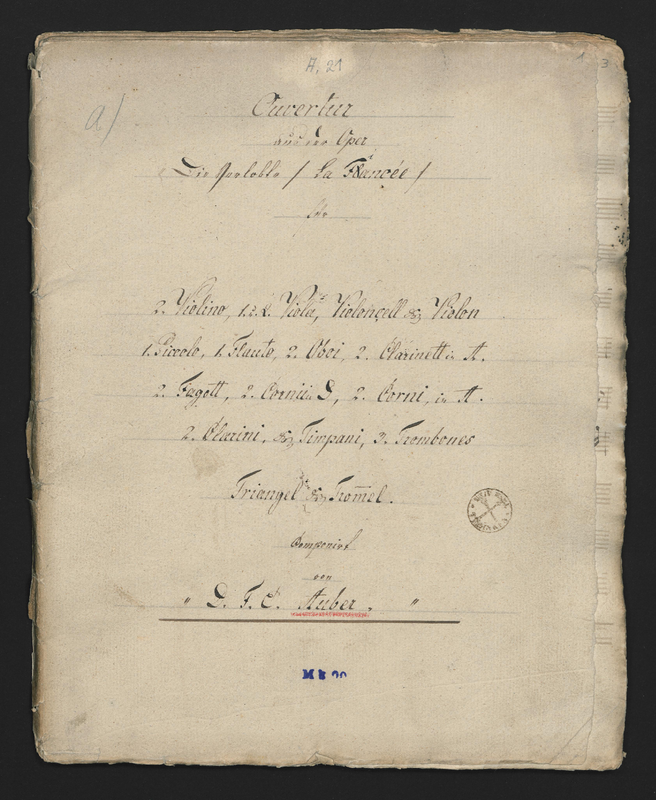 A. 21
1
3
a)
Ouvertur
aus der Oper
Die Verlobte / La Fiancée /
für
2. Violino, 1. & 2. Viola, Violonçell & Violon
1. Piccolo, 1. Flauto, 2. Oboi, 2. Clarinett in A.
2. Fagott, 2. Corni in D, 2. Corni, in A.
2. Clarini, & Timpani, 3. Trombones
Triangel & Trom̅el.
Componirt
von
" D. F. E. Auber. "